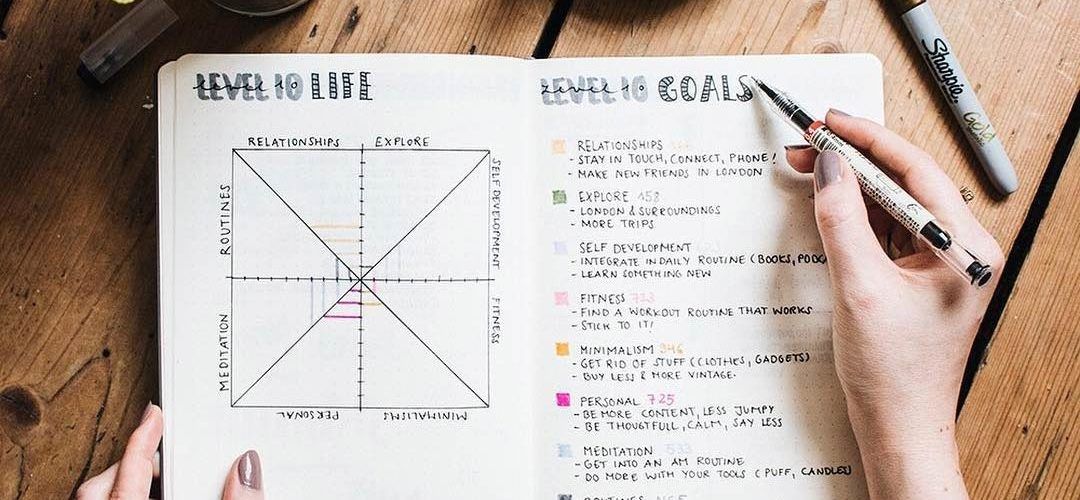 LEVEL 10 LIFE
RELATIONSHIPS
EXPLORE
SELF DEVELOPMENT
FITNESS
MINIMALISMS
PERSONAL
MEDITATION
ROUTINES
LEVEL 10 GOALS
RELATIONSHIPS
- STAY IN TOUCH, CONNECT, PHONE!
- MAKE NEW FRIENDS IN LONDON
EXPLORE 158
- LONDON & SURROUNDINGS
- MORE TRIPS
SELF DEVELOPMENT
- INTEGRATE IN DAILY ROUTINE (BOOKS, PODC
- LEARN SOMETHING NEW
FITNESS 723
- FIND A WORKOUT ROUTINE THAT WORKS
- STICK TO IT!
MINIMALISM 946
- GET RID OF STUFF (CLOTHES, GADGETS)
- BUY LESS & MORE VINTAGE.
PERSONAL 725
- BE MORE CONTENT, LESS JUMPY
- BE THOUGTFULL, CALM, SAY LESS
MEDITATION 533
- GET INTO AN AM ROUTINE
- DO MORE WITH YOUR TOOLS (PUFF, CANDLES)
ROUTINES
Sharpie.